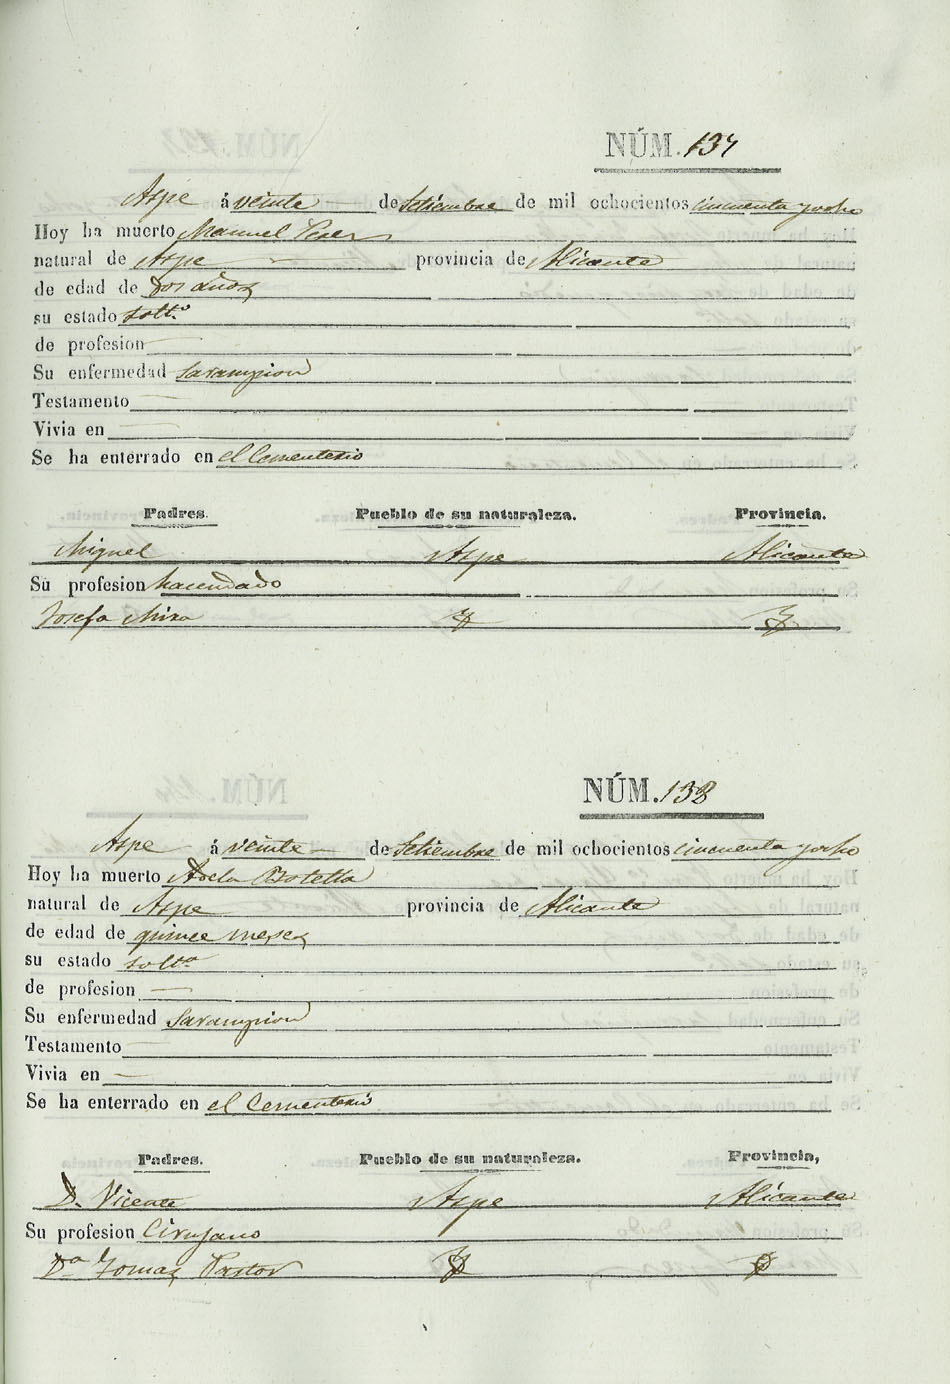 NÚM. 137
Aspe á veinte de Setiembre de mil ochocientos cincuenta y ocho
Hoy ha muerto Manuel Perez
natural de Aspe provincia de Alicante
de edad de dos años
su estado soltº
de profesion
Su enfermedad Sarampion
Testamento
Vivia en
Se ha enterrado en el Cementerio
Padres. Pueblo de su naturaleza. Provincia.
Miguel Aspe Alicante
Su profesion hacendado
Josefa Mira
NÚM. 138
Aspe á veinte de Setiembre de mil ochocientos cincuenta y ocho
Hoy ha muerto Adela Botella
natural de Aspe provincia de Alicante
de edad de quince meses
su estado soltª
de profesion
Su enfermedad Sarampion
Testamento
Vivia en
Se ha enterrado en el Cementerio
Padres. Pueblo de su naturaleza. Provincia,
D. Vicente Aspe Alicante
Su profesion Cirujano
Dª Tomasa Pastor